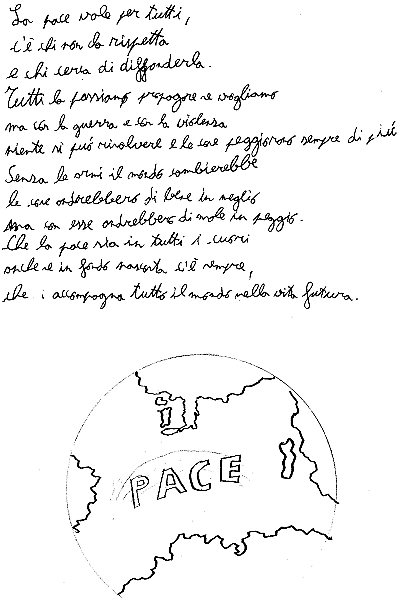 La pace vale per tutti,
c'è chi non la rispetta
e chi cerca di diffonderla.
Tutti la possiamo propagare se vogliamo
ma con la guerra e con la violenza
niente si può risolvere e le cose peggiorano sempre di più
Senza le armi il mondo cambierebbe
le cose andrebbero di bene in meglio
ma con esse andrebbero di male in peggio.
Che la pace sia in tutti i cuori
anche se in fondo nascosta c'è sempre,
che i accompagna tutto il mondo nella vita futura.
PACE